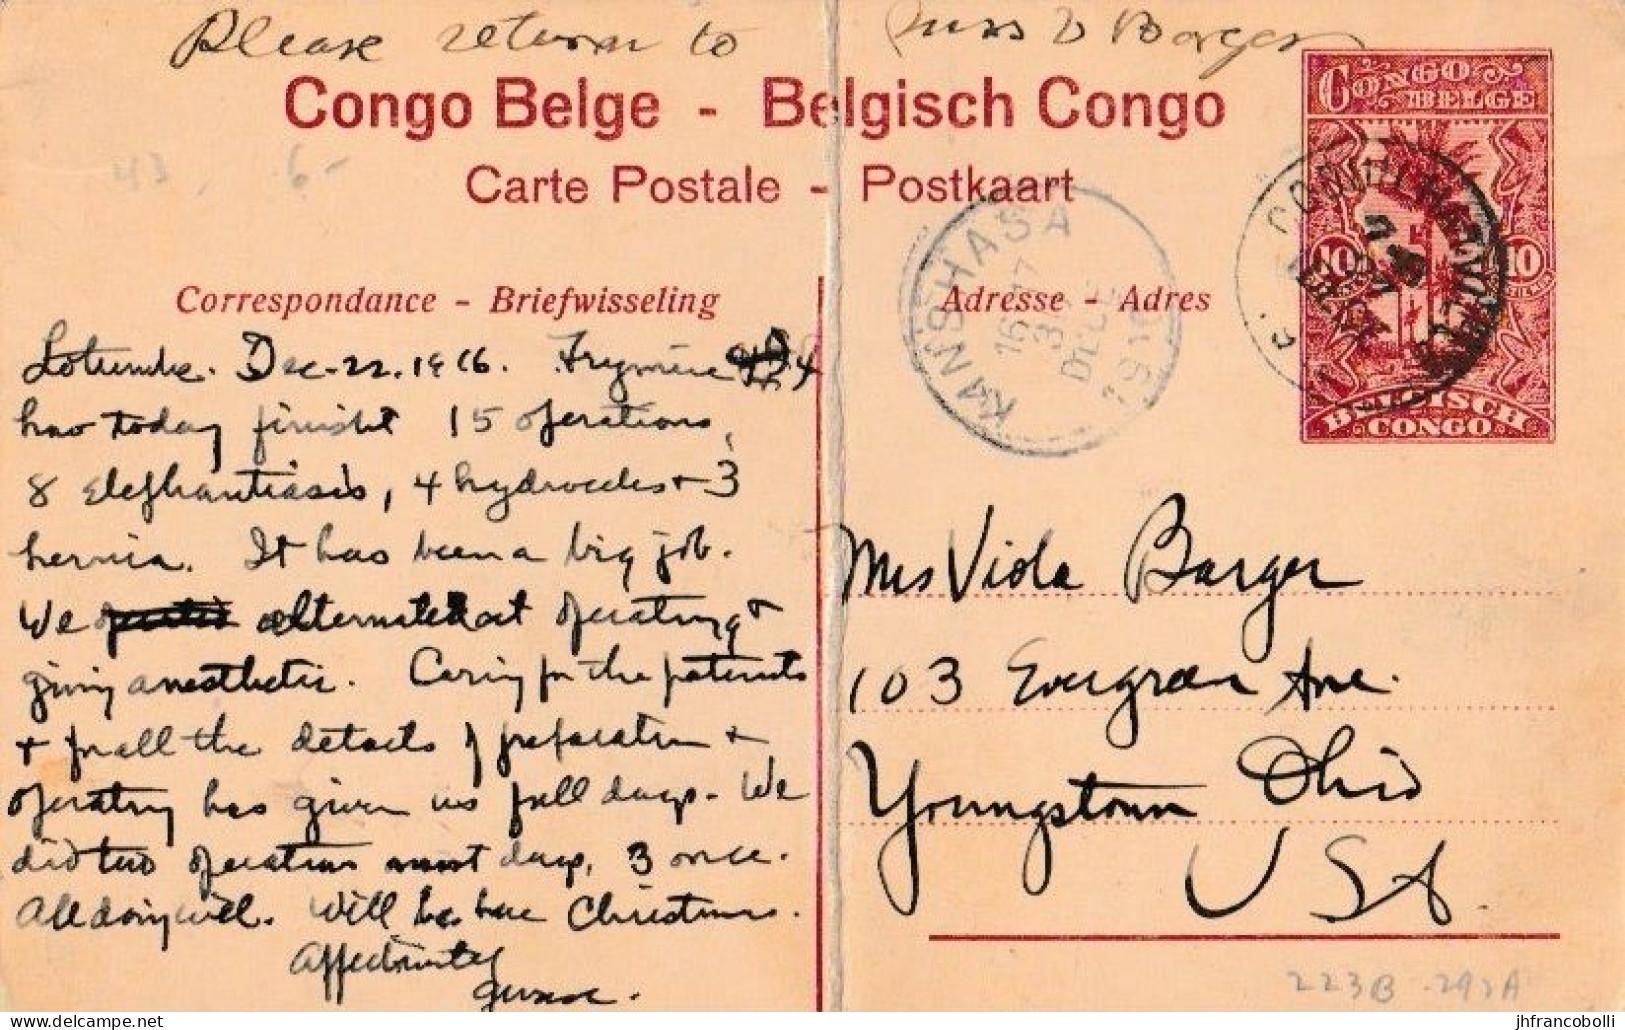 Please return to Miss V Barger
Congo Belge - Belgisch Congo
Carte Postale - Postkaart
43, 6-
CONGO
BELGE
10 10
BELGISCH
CONGO
KINSHASA
16-17
3
DEC
191
COQUILHATVILLE
Correspondance - Briefwisseling
Adresse - Adres
Lotumbe. Dec-22.1916. Frymire & I
hav today finisht 15 operations,
8 elephantiasis, 4 hydroceles + 3
hernia. It has been a big job.
We alternated at operating +
giving anesthetic. Caring for the patients
+ for all the details of preparation +
operating has given us full days. We
did two operations most days, 3 once.
All doing well. Will be here Christmas.
Affectionately
Mrs Viola Barger
103 Evergreen Ave.
Youngstown Ohio
USA
223B-292A
jhfrancobolli